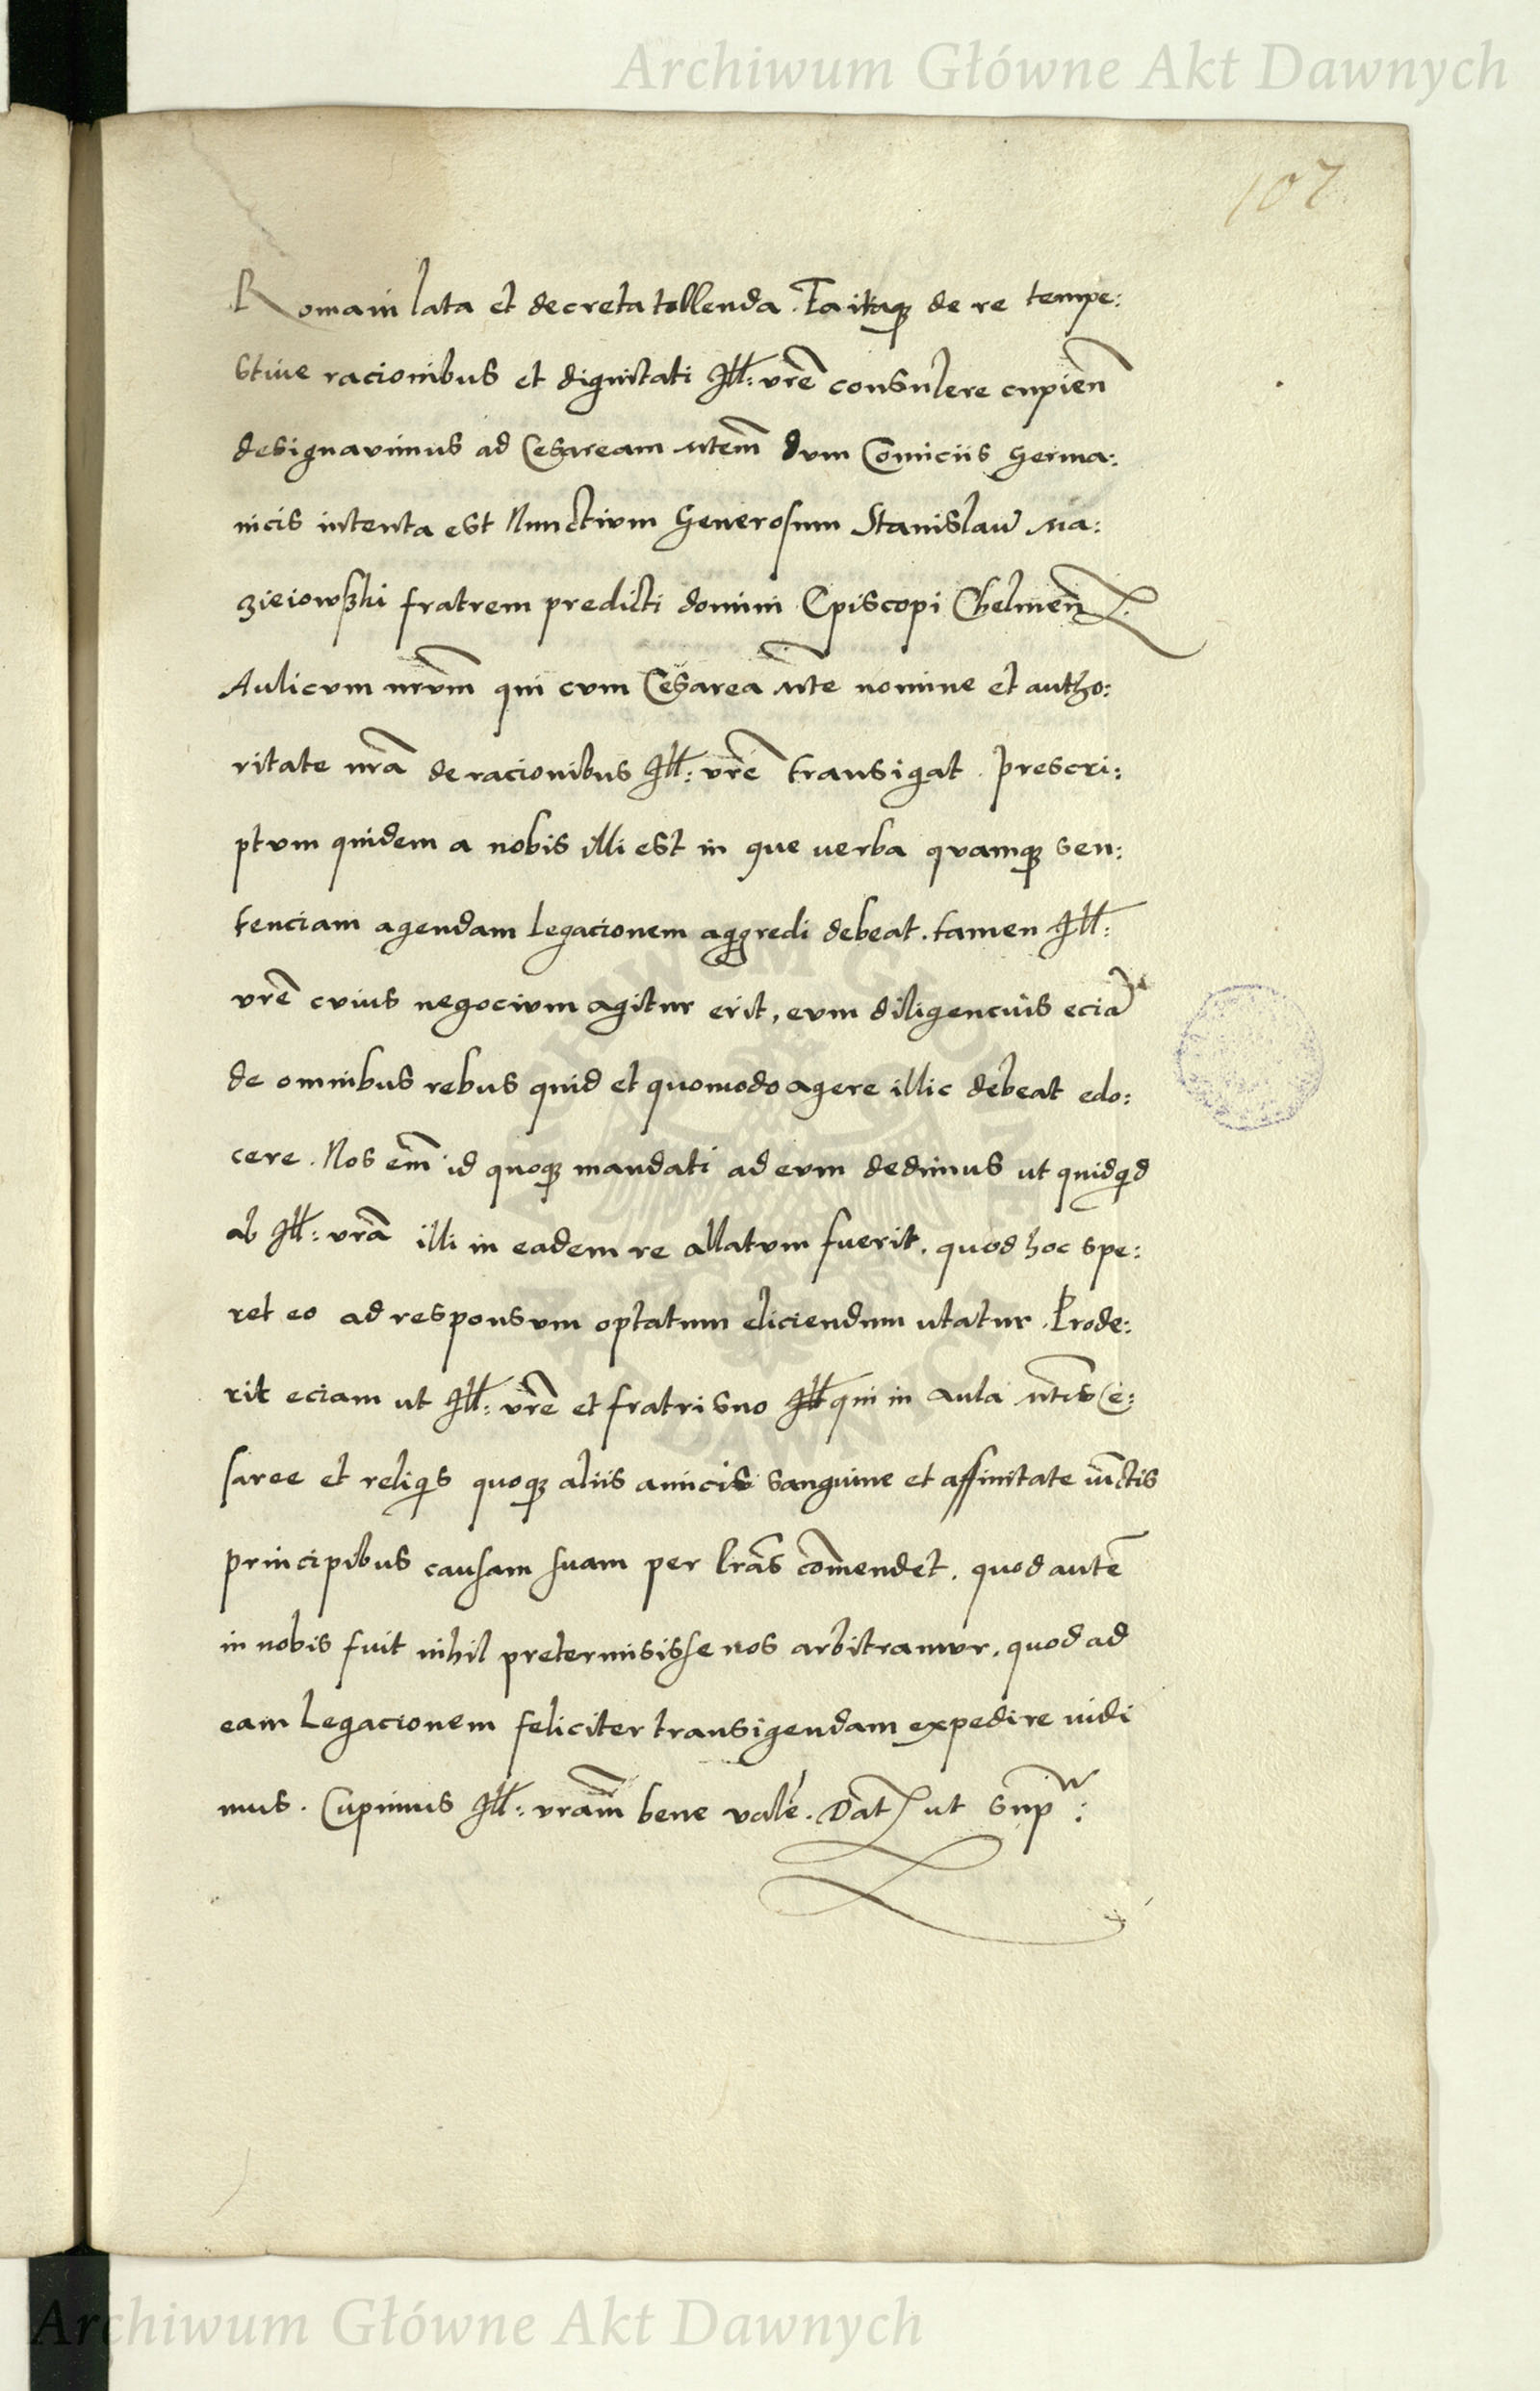 Archiwum Główne Akt Dawnych
107
Romain lata et decreta tollenda. Ea itaq; de re tempe:
stiue racionibus et dignitati Ill: vrē consulere cupien̄
designavimus ad Cesaream Mtem̄ dum Comiciis Germa:
nicis intenta est Nunctium Generosum Stanislaū Ma:
zieiowski fratrem predicti domini Episcopi Chelmen̄
Aulicum nrūm qui cum Cesarea Mte nomine et autho:
ritate nrā de racionibus Ill: vrē transigat. Prescri:
ptum quidem a nobis illi est in que uerba quamq; sen:
tenciam agendam Legacionem aggredi debeat. tamen Ill:
vrē cuius negocium agitur erit, eum diligencius eciā
de omnibus rebus quid et quomodo agere illic debeat edo:
cere. Nos em̄ id quoq; mandati ad eum dedimus ut quidqd
ab Ill: vrā illi in eadem re allatum fuerit, quod hoc spe:
ret eo ad responsum optatum eliciendum utatur. Prode:
rit eciam ut Ill: vrē et fratri suo Ill qui in aula Mtis Ce:
saree et reliqis quoq; aliis amicis sanguine et affinitate iūctis
principibus causam suam per lrās com̄endet. quod autē
in nobis fuit nihil pretermisisse nos arbitramur, quod ad
eam Legacionem feliciter transigendam expedire uidi
mus. Cupimus Ill: vram̄ bene valé. Dat ut sup:
Archiwum Główne Akt Dawnych